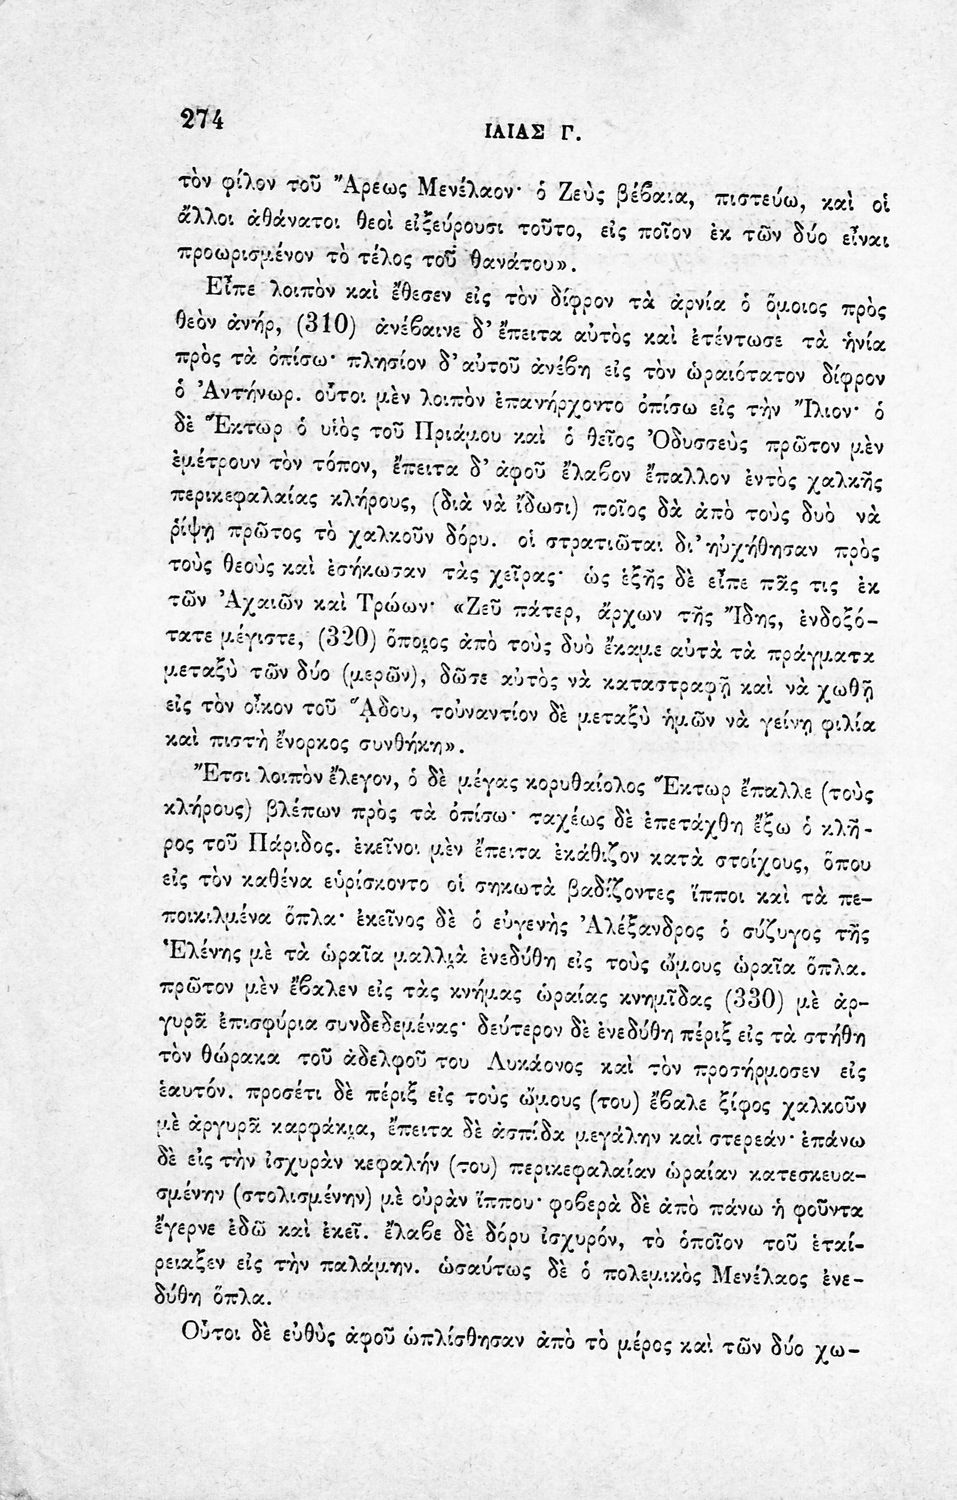 274
ΙΛΙΑΣ Γ.
τὸν φίλον τοῦ Ἄρεως Μενέλαον· ὁ Ζεὺς βέβαια, πιστεύω, καὶ οἱ
ἄλλοι ἀθάνατοι θεοὶ εἰξεύρουσι τοῦτο, εἰς ποῖον ἐκ τῶν δύο εἶναι
προωρισμένον τὸ τέλος τοῦ θανάτου».
Εἶπε λοιπὸν καὶ ἔθεσεν εἰς τὸν δίφρον τὰ ἀρνία ὁ ὅμοιος πρὸς
θεὸν ἀνήρ, (310) ἀνέβαινε δ' ἔπειτα αὐτὸς καὶ ἐτέντωσε τὰ ἡνία
πρὸς τὰ ὀπίσω· πλησίον δ' αὐτοῦ ἀνέβη εἰς τὸν ὡραιότατον δίφρον
ὁ Ἀντήνωρ. οὗτοι μὲν λοιπὸν ἐπανήρχοντο ὀπίσω εἰς τὴν Ἴλιον· ὁ
δὲ Ἕκτωρ ὁ υἱὸς τοῦ Πριάμου καὶ ὁ θεῖος Ὀδυσσεὺς πρῶτον μὲν
ἐμέτρουν τὸν τόπον, ἔπειτα δ' ἀφοῦ ἔλαβον ἔπαλλον ἐντὸς χαλκῆς
περικεφαλαίας κλήρους, (διὰ νὰ ἴδωσι) ποῖος δὰ ἀπὸ τοὺς δυὸ νὰ
ῥίψῃ πρῶτος τὸ χαλκοῦν δόρυ. οἱ στρατιῶται δι' ηὐχήθησαν πρὸς
τοὺς θεοὺς καὶ ἐσήκωσαν τὰς χεῖρας· ὡς ἑξῆς δὲ εἶπε πᾶς τις ἐκ
τῶν Ἀχαιῶν καὶ Τρώων· «Ζεῦ πάτερ, ἄρχων τῆς Ἴδης, ἐνδοξό-
τατε μέγιστε, (320) ὅποιος ἀπὸ τοὺς δυὸ ἔκαμε αὐτὰ τὰ πράγματα
μεταξὺ τῶν δύο (μερῶν), δῶσε αὐτὸς νὰ καταστραφῇ καὶ νὰ χωθῇ
εἰς τὸν οἶκον τοῦ ᾍδου, τοὐναντίον δὲ μεταξὺ ἡμῶν νὰ γείνῃ φιλία
καὶ πιστὴ ἔνορκος συνθήκη».
Ἔτσι λοιπὸν ἔλεγον, ὁ δὲ μέγας κορυθαίολος Ἕκτωρ ἔπαλλε (τοὺς
κλήρους) βλέπων πρὸς τὰ ὀπίσω· ταχέως δὲ ἐπετάχθη ἔξω ὁ κλῆ-
ρος τοῦ Πάριδος. ἐκεῖνοι μὲν ἔπειτα ἐκάθιζον κατὰ στοίχους, ὅπου
εἰς τὸν καθένα εὑρίσκοντο οἱ σηκωτὰ βαδίζοντες ἵπποι καὶ τὰ πε-
ποικιλμένα ὅπλα· ἐκεῖνος δὲ ὁ εὐγενὴς Ἀλέξανδρος ὁ σύζυγος τῆς
Ἑλένης μὲ τὰ ὡραῖα μαλλιὰ ἐνεδύθη εἰς τοὺς ὤμους ὡραῖα ὅπλα.
πρῶτον μὲν ἔβαλεν εἰς τὰς κνήμας ὡραίας κνημῖδας (330) μὲ ἀρ-
γυρᾶ ἐπισφύρια συνδεδεμένας· δεύτερον δὲ ἐνεδύθη πέριξ εἰς τὰ στήθη
τὸν θώρακα τοῦ ἀδελφοῦ του Λυκάονος καὶ τὸν προσήρμοσεν εἰς
ἑαυτόν. προσέτι δὲ πέριξ εἰς τοὺς ὤμους (του) ἔβαλε ξίφος χαλκοῦν
μὲ ἀργυρᾶ καρφάκια, ἔπειτα δὲ ἀσπίδα μεγάλην καὶ στερεάν· ἐπάνω
δὲ εἰς τὴν ἰσχυρὰν κεφαλήν (του) περικεφαλαίαν ὡραίαν κατεσκευα-
σμένην (στολισμένην) μὲ οὐρὰν ἵππου· φοβερὰ δὲ ἀπὸ πάνω ἡ φοῦντα
ἔγερνε ἐδῶ καὶ ἐκεῖ. ἔλαβε δὲ δόρυ ἰσχυρόν, τὸ ὁποῖον τοῦ ἑταί-
ρειαξεν εἰς τὴν παλάμην. ὡσαύτως δὲ ὁ πολεμικὸς Μενέλαος ἐνε-
δύθη ὅπλα.
Οὗτοι δὲ εὐθὺς ἀφοῦ ὡπλίσθησαν ἀπὸ τὸ μέρος καὶ τῶν δύο χω-